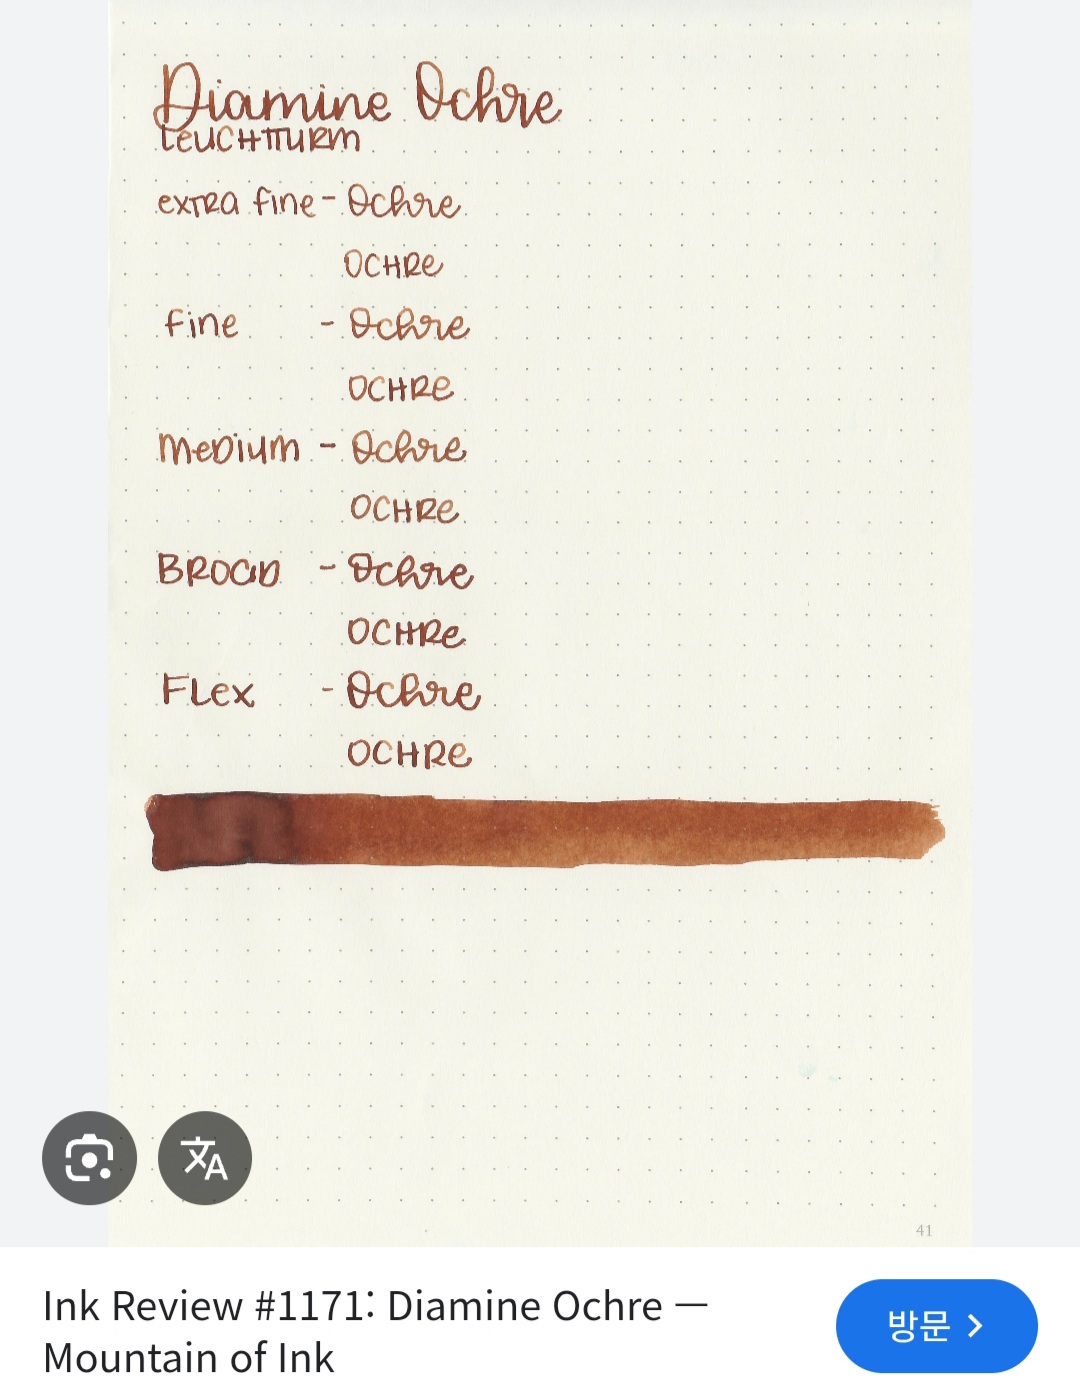 Diamine Ochre
Leuchtturm
extra fine - Ochre
Ochre
fine - Ochre
Ochre
Medium - Ochre
Ochre
Broad - Ochre
Ochre
Flex - Ochre
Ochre
41
Ink Review #1171: Diamine Ochre —
Mountain of Ink
방문